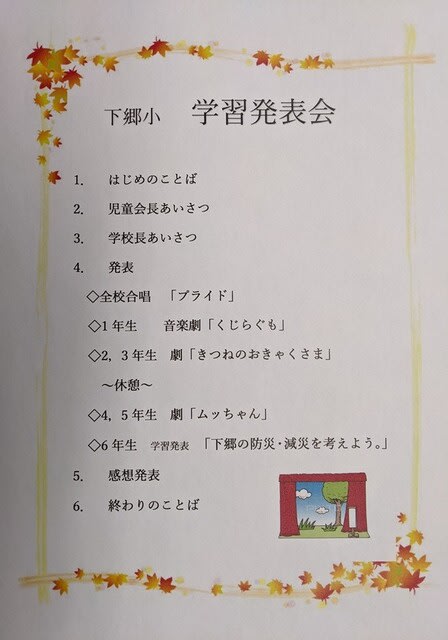 下郷小　学習発表会
1.　はじめのことば
2.　児童会長あいさつ
3.　学校長あいさつ
4.　発表
◇全校合唱　「プライド」
◇1年生　　音楽劇「くじらぐも」
◇2，3年生　劇「きつねのおきゃくさま」
～休憩～
◇4，5年生　劇「ムッちゃん」
◇6年生　学習発表　「下郷の防災・減災を考えよう。」
5.　感想発表
6.　終わりのことば